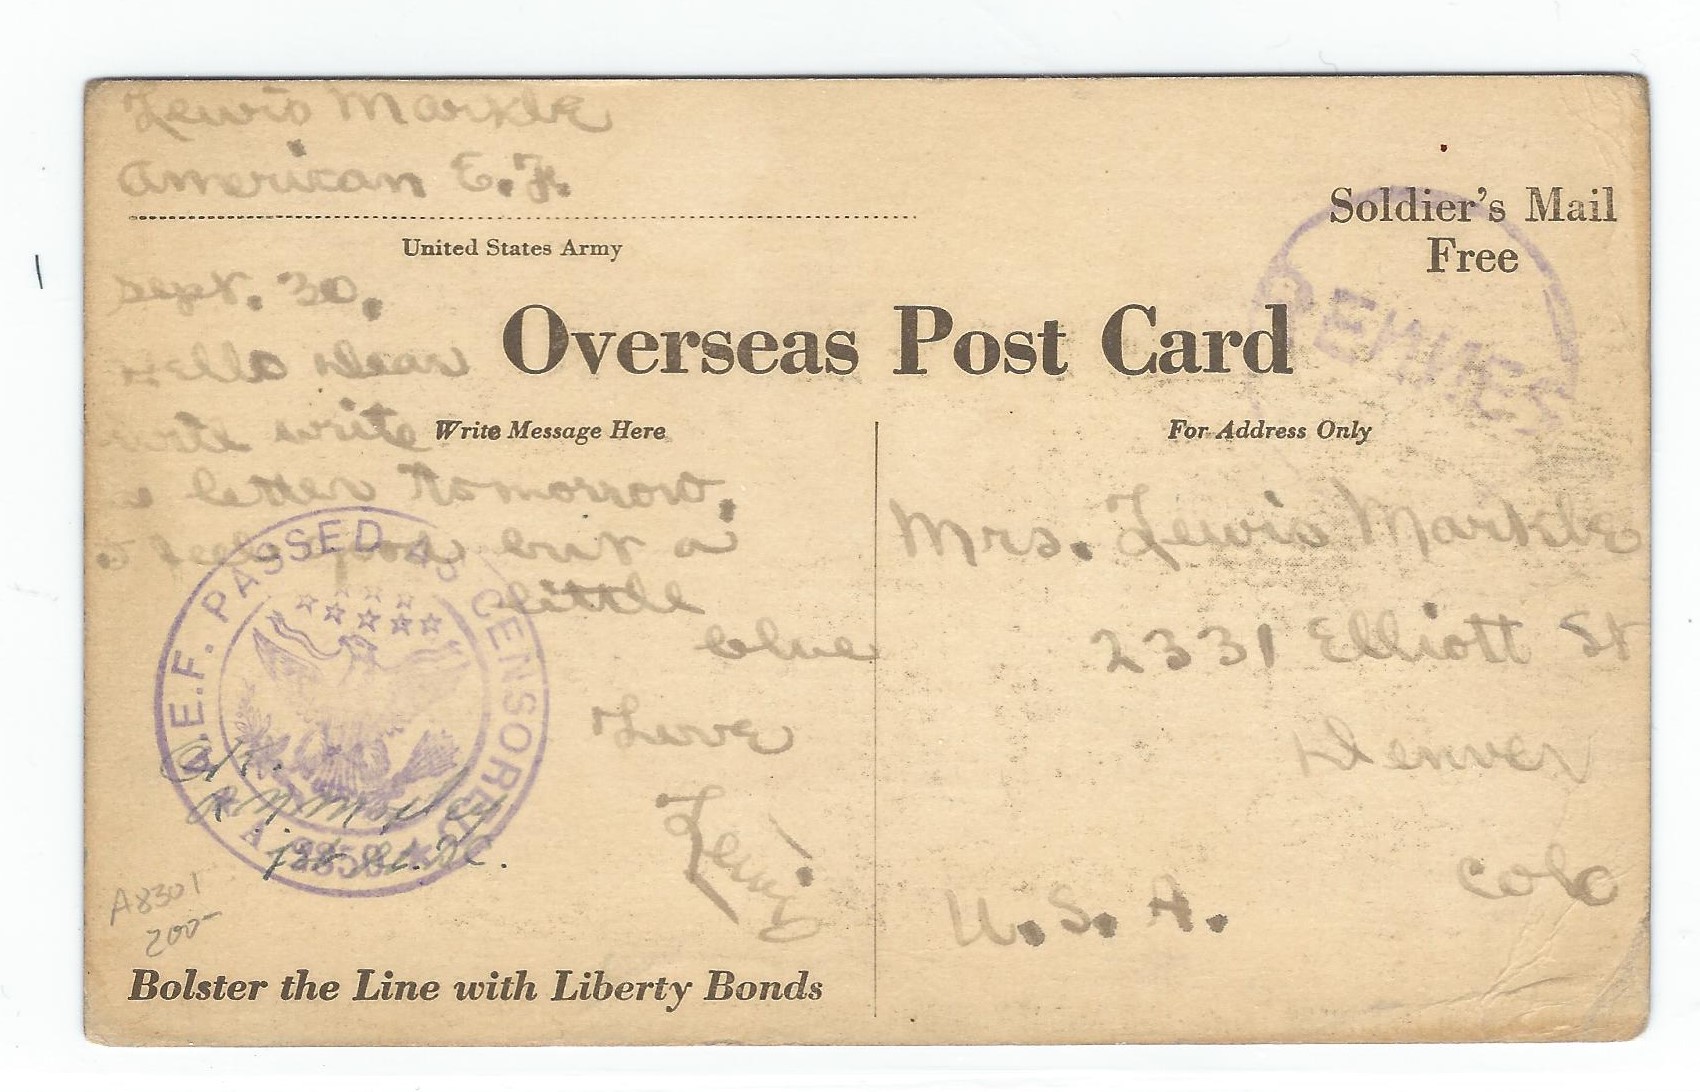 Lewis Markle
American E.F.
United States Army
Soldier's Mail
Free
Sept. 30.
Overseas Post Card
Hello Dear
Write Message Here
For Address Only
write
a letter tomorrow,
I feel good but a
little
blue
Love
Lewis
Mrs. Lewis Markle
2331 Elliott St
Denver
Colo
U.S.A.
A.E.F. PASSED AS CENSORED
OK.
1st Lt.
A8301
200-
Bolster the Line with Liberty Bonds